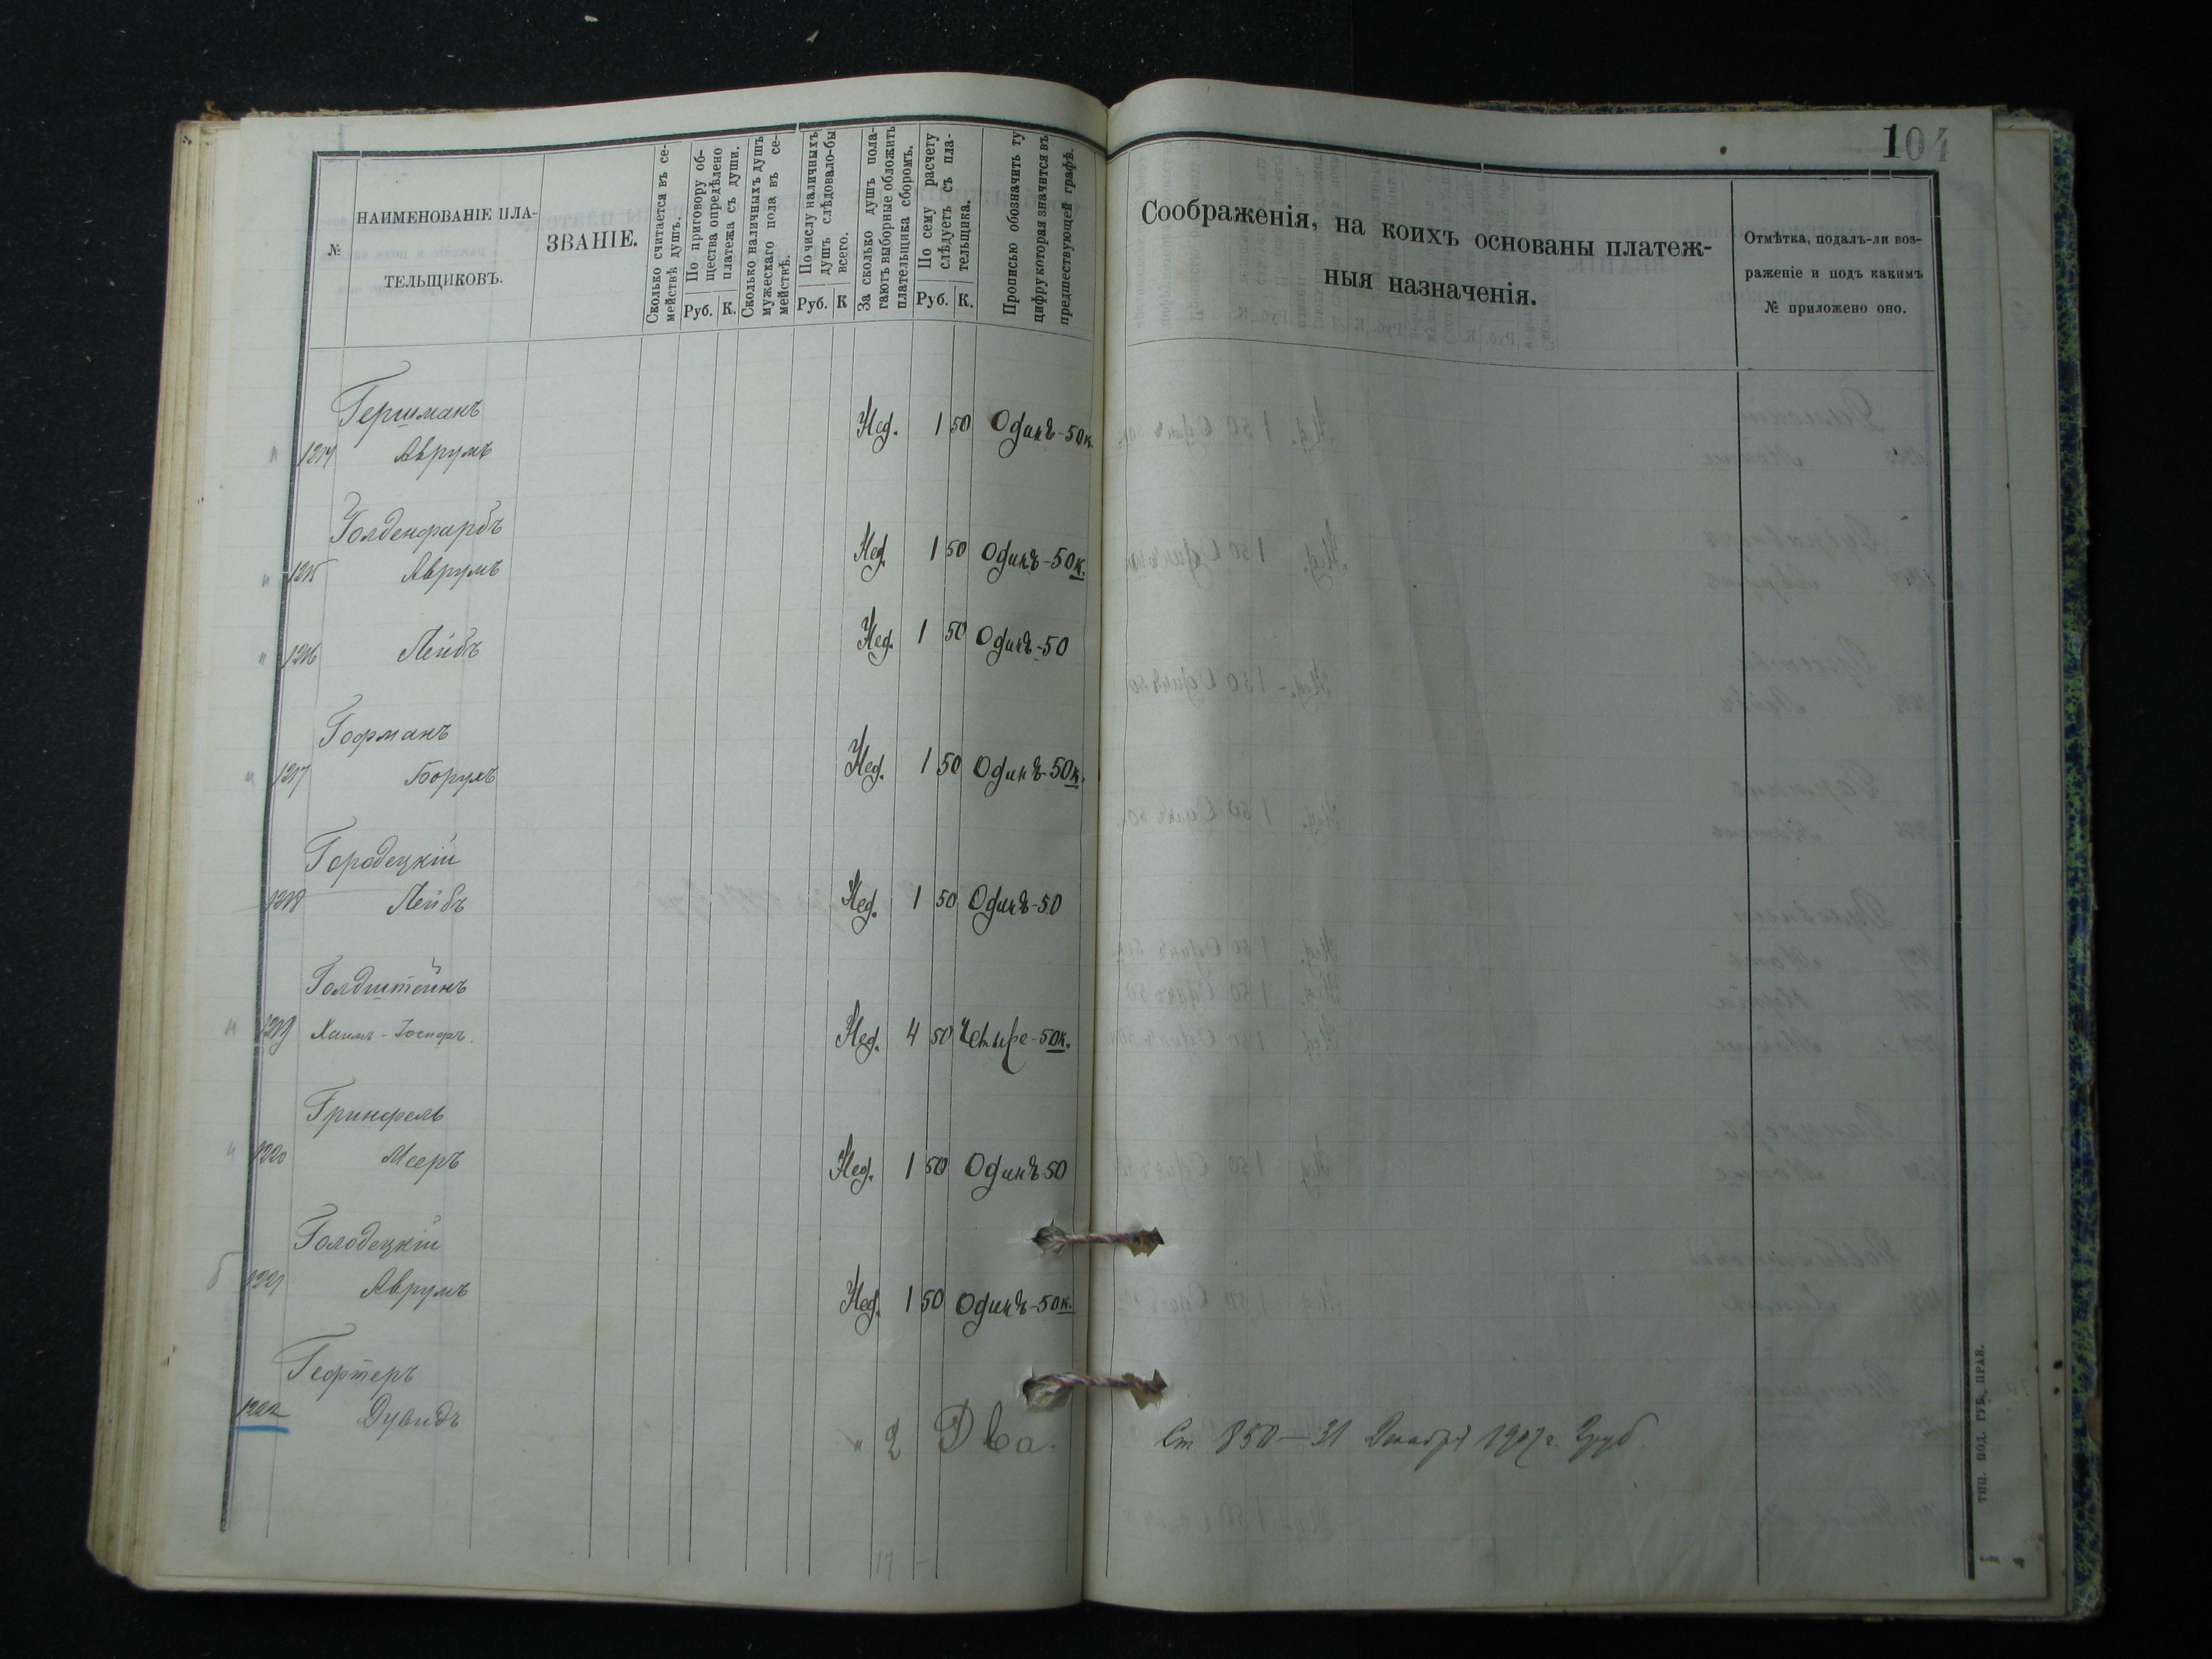 104
№
НАИМЕНОВАНІЕ ПЛА-
ТЕЛЬЩИКОВЪ.
ЗВАНІЕ.
Сколько считается въ се-
мействѣ душъ.
По приговору об-
щества опредѣлено
платежа съ души.
Руб. К.
Сколько наличныхъ душъ
мужескаго пола въ се-
мействѣ.
По числу наличныхъ
душъ слѣдовало-бы
всего.
Руб. К
За сколько душъ пола-
гаютъ выборные обложить
плательщика сборомъ.
По сему расчету
слѣдуетъ съ пла-
тельщика.
Руб. К.
Прописью обозначить ту
цифру которая значится въ
предшествующей графѣ.
Соображенія, на коихъ основаны платеж-
ныя назначенія.
Отмѣтка, подалъ-ли воз-
раженіе и подъ какимъ
№ приложено оно.
Гершманъ
1214 Аврумъ Нед. 1 50 Одинъ-50к.
Голденфарбъ
1215 Аврумъ Нед. 1 50 Одинъ-50к.
1216 Лейбъ Нед. 1 50 Одинъ-50
Гофманъ
1217 Борухъ Нед. 1 50 Одинъ-50к.
Городецкій
1218 Лейбъ Нед. 1 50 Одинъ-50
Голдштейнъ
1219 Хаимъ-Іосифъ. Нед. 4 50 Четыре-50к.
Гринфель
1220 Мееръ Нед. 1 50 Одинъ 50
Голодецкій
1221 Аврумъ Нед. 1 50 Одинъ-50к.
Гефтеръ
1222 Дувидъ " 2 Два. Ст 850—31 Декабря 1907 г.
17
ТИП. ПОД. ГУБ. ПРАВ.